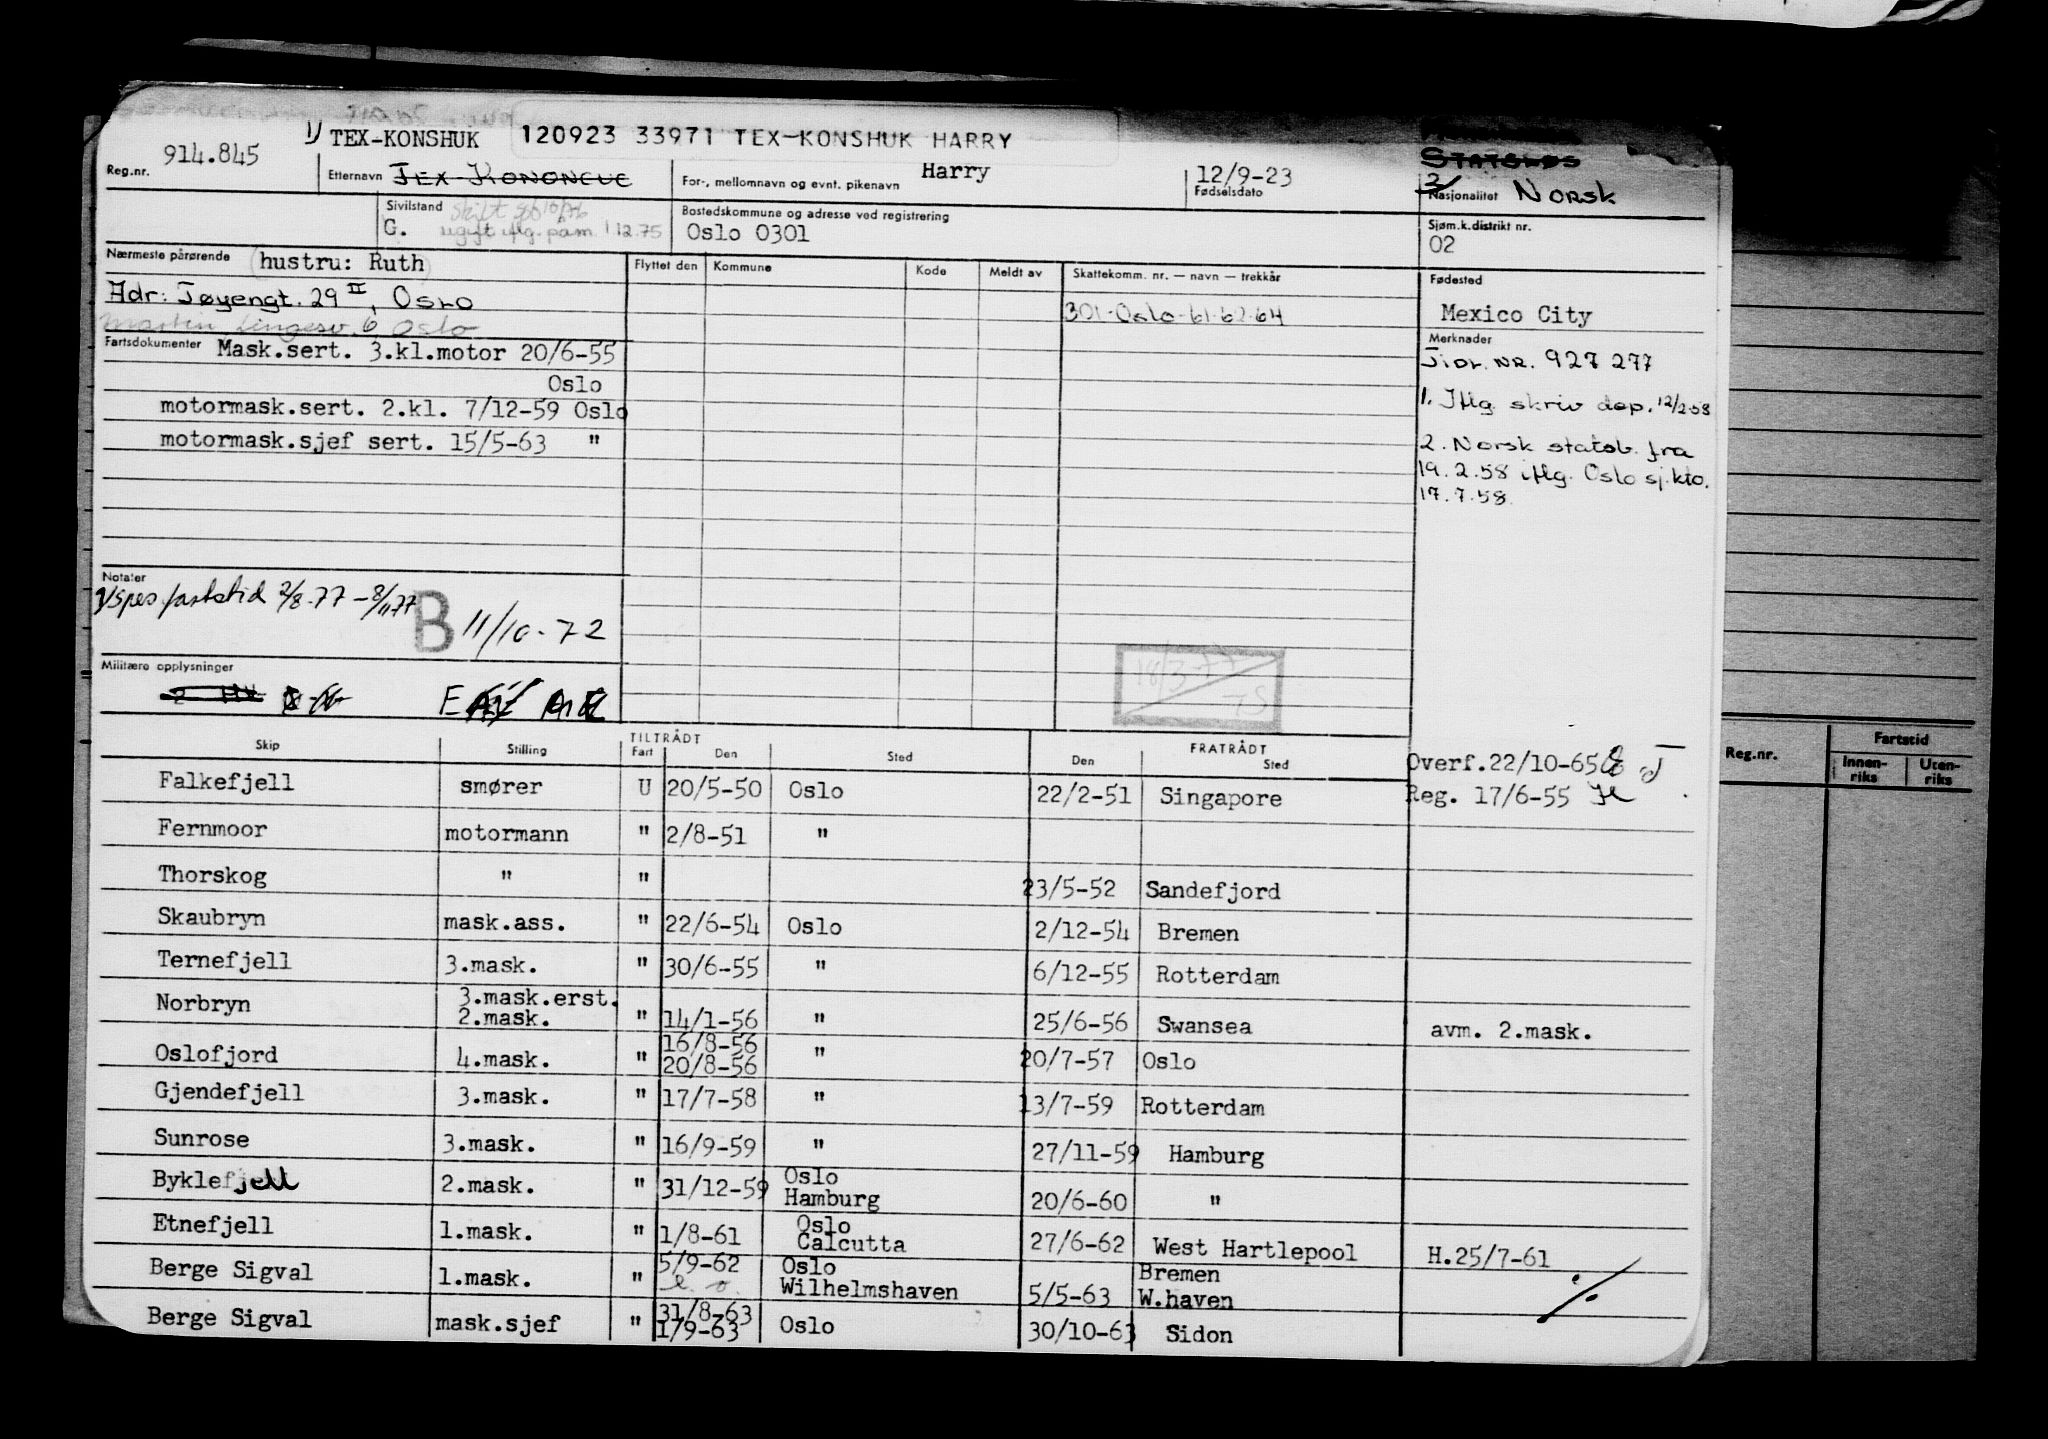 1) TEX-KONSHUK 120923 33971 TEX-KONSHUK HARRY
Reg.nr. 914.845
Etternavn
For-, mellomnavn og evnt. pikenavn Harry
12/9-23
Fødselsdato
STATSLØS
2/ Nasjonalitet NORSK
Sivilstand
G.
ugift iflg. pam. 1.12.75
Bostedskommune og adresse ved registrering
Oslo 0301
Sjøm.k.distrikt nr.
02
Nærmeste pårørende (hustru: Ruth)
Adr: Tøyengt. 29 II, OSLO
Oslo
Flyttet den Kommune Kode Meldt av Skattekomm. nr. — navn — trekkår
301-Oslo-61-62-64
Fødested
Mexico City
Fartsdokumenter Mask.sert. 3.kl.motor 20/6-55
Oslo
motormask.sert. 2.kl. 7/12-59 Oslo
motormask.sjef sert. 15/5-63 "
Merknader
NR. 927 277
1. Iflg. skriv dep. 12/2-58
2. Norsk statsb. fra
19.2.58 iflg. Oslo sj.kto.
17.7.58.
Notater
1/spes.fartstid 2/8-77 - 8/11 77
B 11/10-72
Militære opplysninger
18/3-77
Skip Stilling TILTRÅDT Fart Den Sted FRATRÅDT Den Sted
Overf.22/10-65
Falkefjell smører U 20/5-50 Oslo 22/2-51 Singapore Reg. 17/6-55
Fernmoor motormann " 2/8-51 "
Thorskog " " 23/5-52 Sandefjord
Skaubryn mask.ass. " 22/6-54 Oslo 2/12-54 Bremen
Ternefjell 3.mask. " 30/6-55 " 6/12-55 Rotterdam
Norbryn 3.mask.erst.
2.mask. " 14/1-56 " 25/6-56 Swansea avm. 2.mask.
16/8-56
Oslofjord 4.mask. " 20/8-56 " 20/7-57 Oslo
Gjendefjell 3.mask. " 17/7-58 " 13/7-59 Rotterdam
Sunrose 3.mask. " 16/9-59 " 27/11-59 Hamburg
Byklefjell 2.mask. " 31/12-59 Oslo
Hamburg 20/6-60 "
Etnefjell 1.mask. " 1/8-61 Oslo
Calcutta 27/6-62 West Hartlepool H.25/7-61
Berge Sigval 1.mask. " 5/9-62 Oslo Bremen
Wilhelmshaven 5/5-63 W.haven
31/8-63
Berge Sigval mask.sjef " 1/9-63 Oslo 30/10-63 Sidon
Reg.nr.
Fartstid
Innen-
riks
Uten-
riks